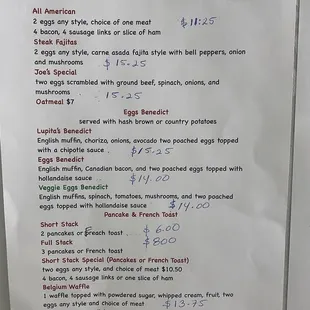 All American
2 eggs any style, choice of one meat $11.25
4 bacon, 4 sausage links or slice of ham
Steak Fajitas
2 eggs any style, carne asada fajita style with bell peppers, onion
and mushrooms $15.25
Joe's Special
two eggs scrambled with ground beef, spinach, onions, and
mushrooms 15.25
Oatmeal $7
Eggs Benedict
served with hash brown or country potatoes
Lupita's Benedict
English muffin, chorizo, onions, avocado two poached eggs topped
with a chipotle sauce $15.25
Eggs Benedict
English muffin, Canadian bacon, and two poached eggs topped with
hollandaise sauce $14.00
Veggie Eggs Benedict
English muffins, spinach, tomatoes, mushrooms, and two poached
eggs topped with hollandaise sauce $14.00
Pancake & French Toast
Short Stack
2 pancakes or French toast $6.00
Full Stack $800
3 pancakes or French toast
Short Stack Special (Pancakes or French Toast)
two eggs any style, and choice of meat $10.50
4 bacon, 4 sausage links or one slice of ham
Belgium Waffle
1 waffle topped with powdered sugar, whipped cream, fruit, two
eggs any style and choice of meat $13.75